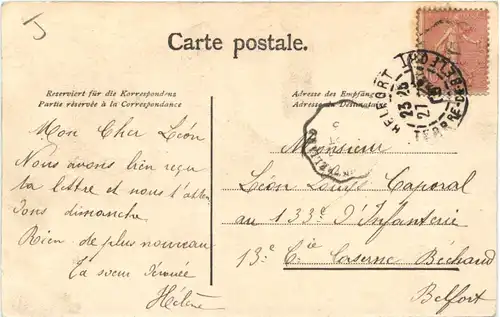 Carte postale.
Reserviert für die Korrespondenz
Partie réservée à la Correspondance
Adresse des Empfäng
Adresse du Destinat
BELFORT
23 25
27
Mon Cher Léon
Nous avons bien reçu
ta lettre et nous t'atten
dons dimanche
Rien de plus nouveau
Ta soeur dévouée
Hélène
Monsieur
Léon Caporal
au 133e d'Infanterie
13e Cie Caserne Béchaud
Belfort